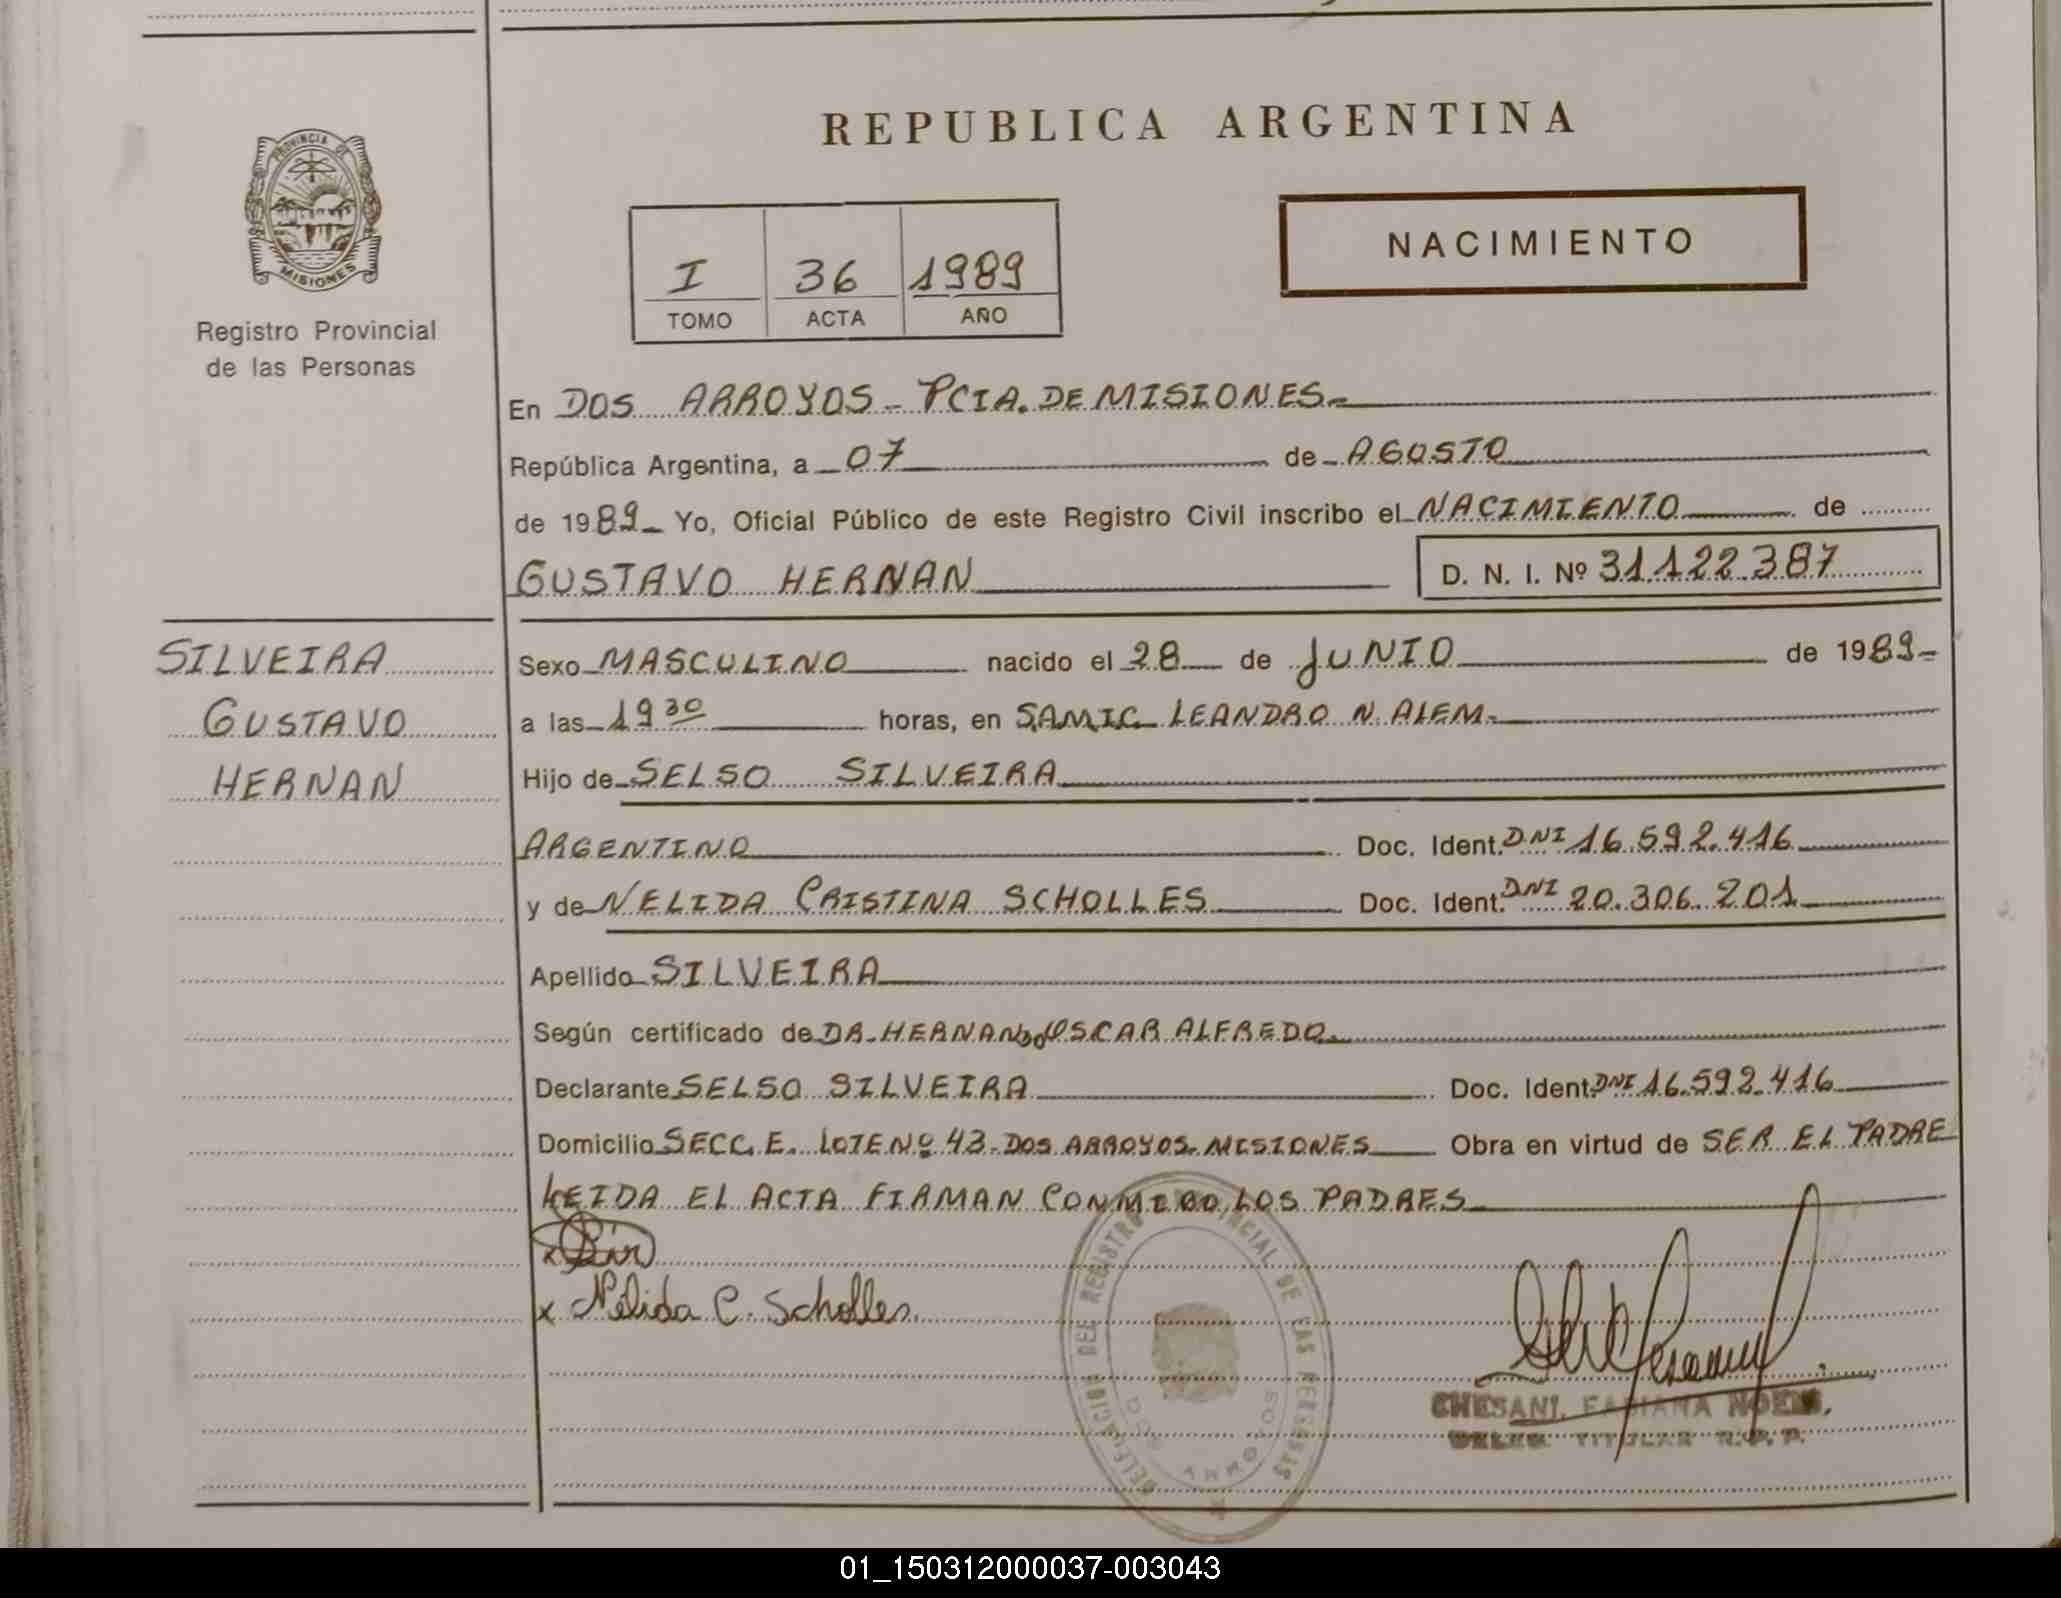 REPUBLICA ARGENTINA
PROVINCIA DE
MISIONES
Registro Provincial
de las Personas
I 36 1989
TOMO ACTA AÑO
NACIMIENTO
En DOS ARROYOS - PCIA. DE MISIONES.-
República Argentina, a 07 de AGOSTO
de 1989 Yo, Oficial Público de este Registro Civil inscribo el NACIMIENTO de
GUSTAVO HERNAN D. N. I. Nº 31.122.387
SILVEIRA
GUSTAVO
HERNAN
Sexo MASCULINO nacido el 28 de JUNIO de 1989-
a las 19 30 horas, en SAMIC LEANDRO N. ALEM-
Hijo de SELSO SILVEIRA
ARGENTINO Doc. Ident. DNI 16.592.416
y de NELIDA CRISTINA SCHOLLES Doc. Ident. DNI 20.306.201
Apellido SILVEIRA
Según certificado de DR. HERNANDO OSCAR ALFREDO.
Declarante SELSO SILVEIRA Doc. Ident. DNI 16.592.416
Domicilio SECC. E. LOTE Nº 43-DOS ARROYOS-MISIONES Obra en virtud de SER EL PADRE
LEIDA EL ACTA FIRMAN CONMIGO LOS PADRES
x
x Nélida C. Scholles.
DELEGACION DEL REGISTRO PROVINCIAL DE LAS PERSONAS
DOS ARROYOS
CHESANI, FABIANA NOEMI.
DELEG. TITULAR R.P.P.
01_150312000037-003043